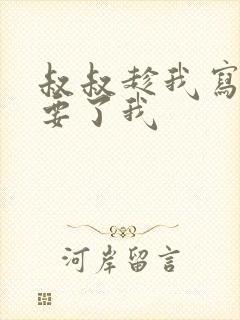 叔叔趁我寫
要了我
河岸留言